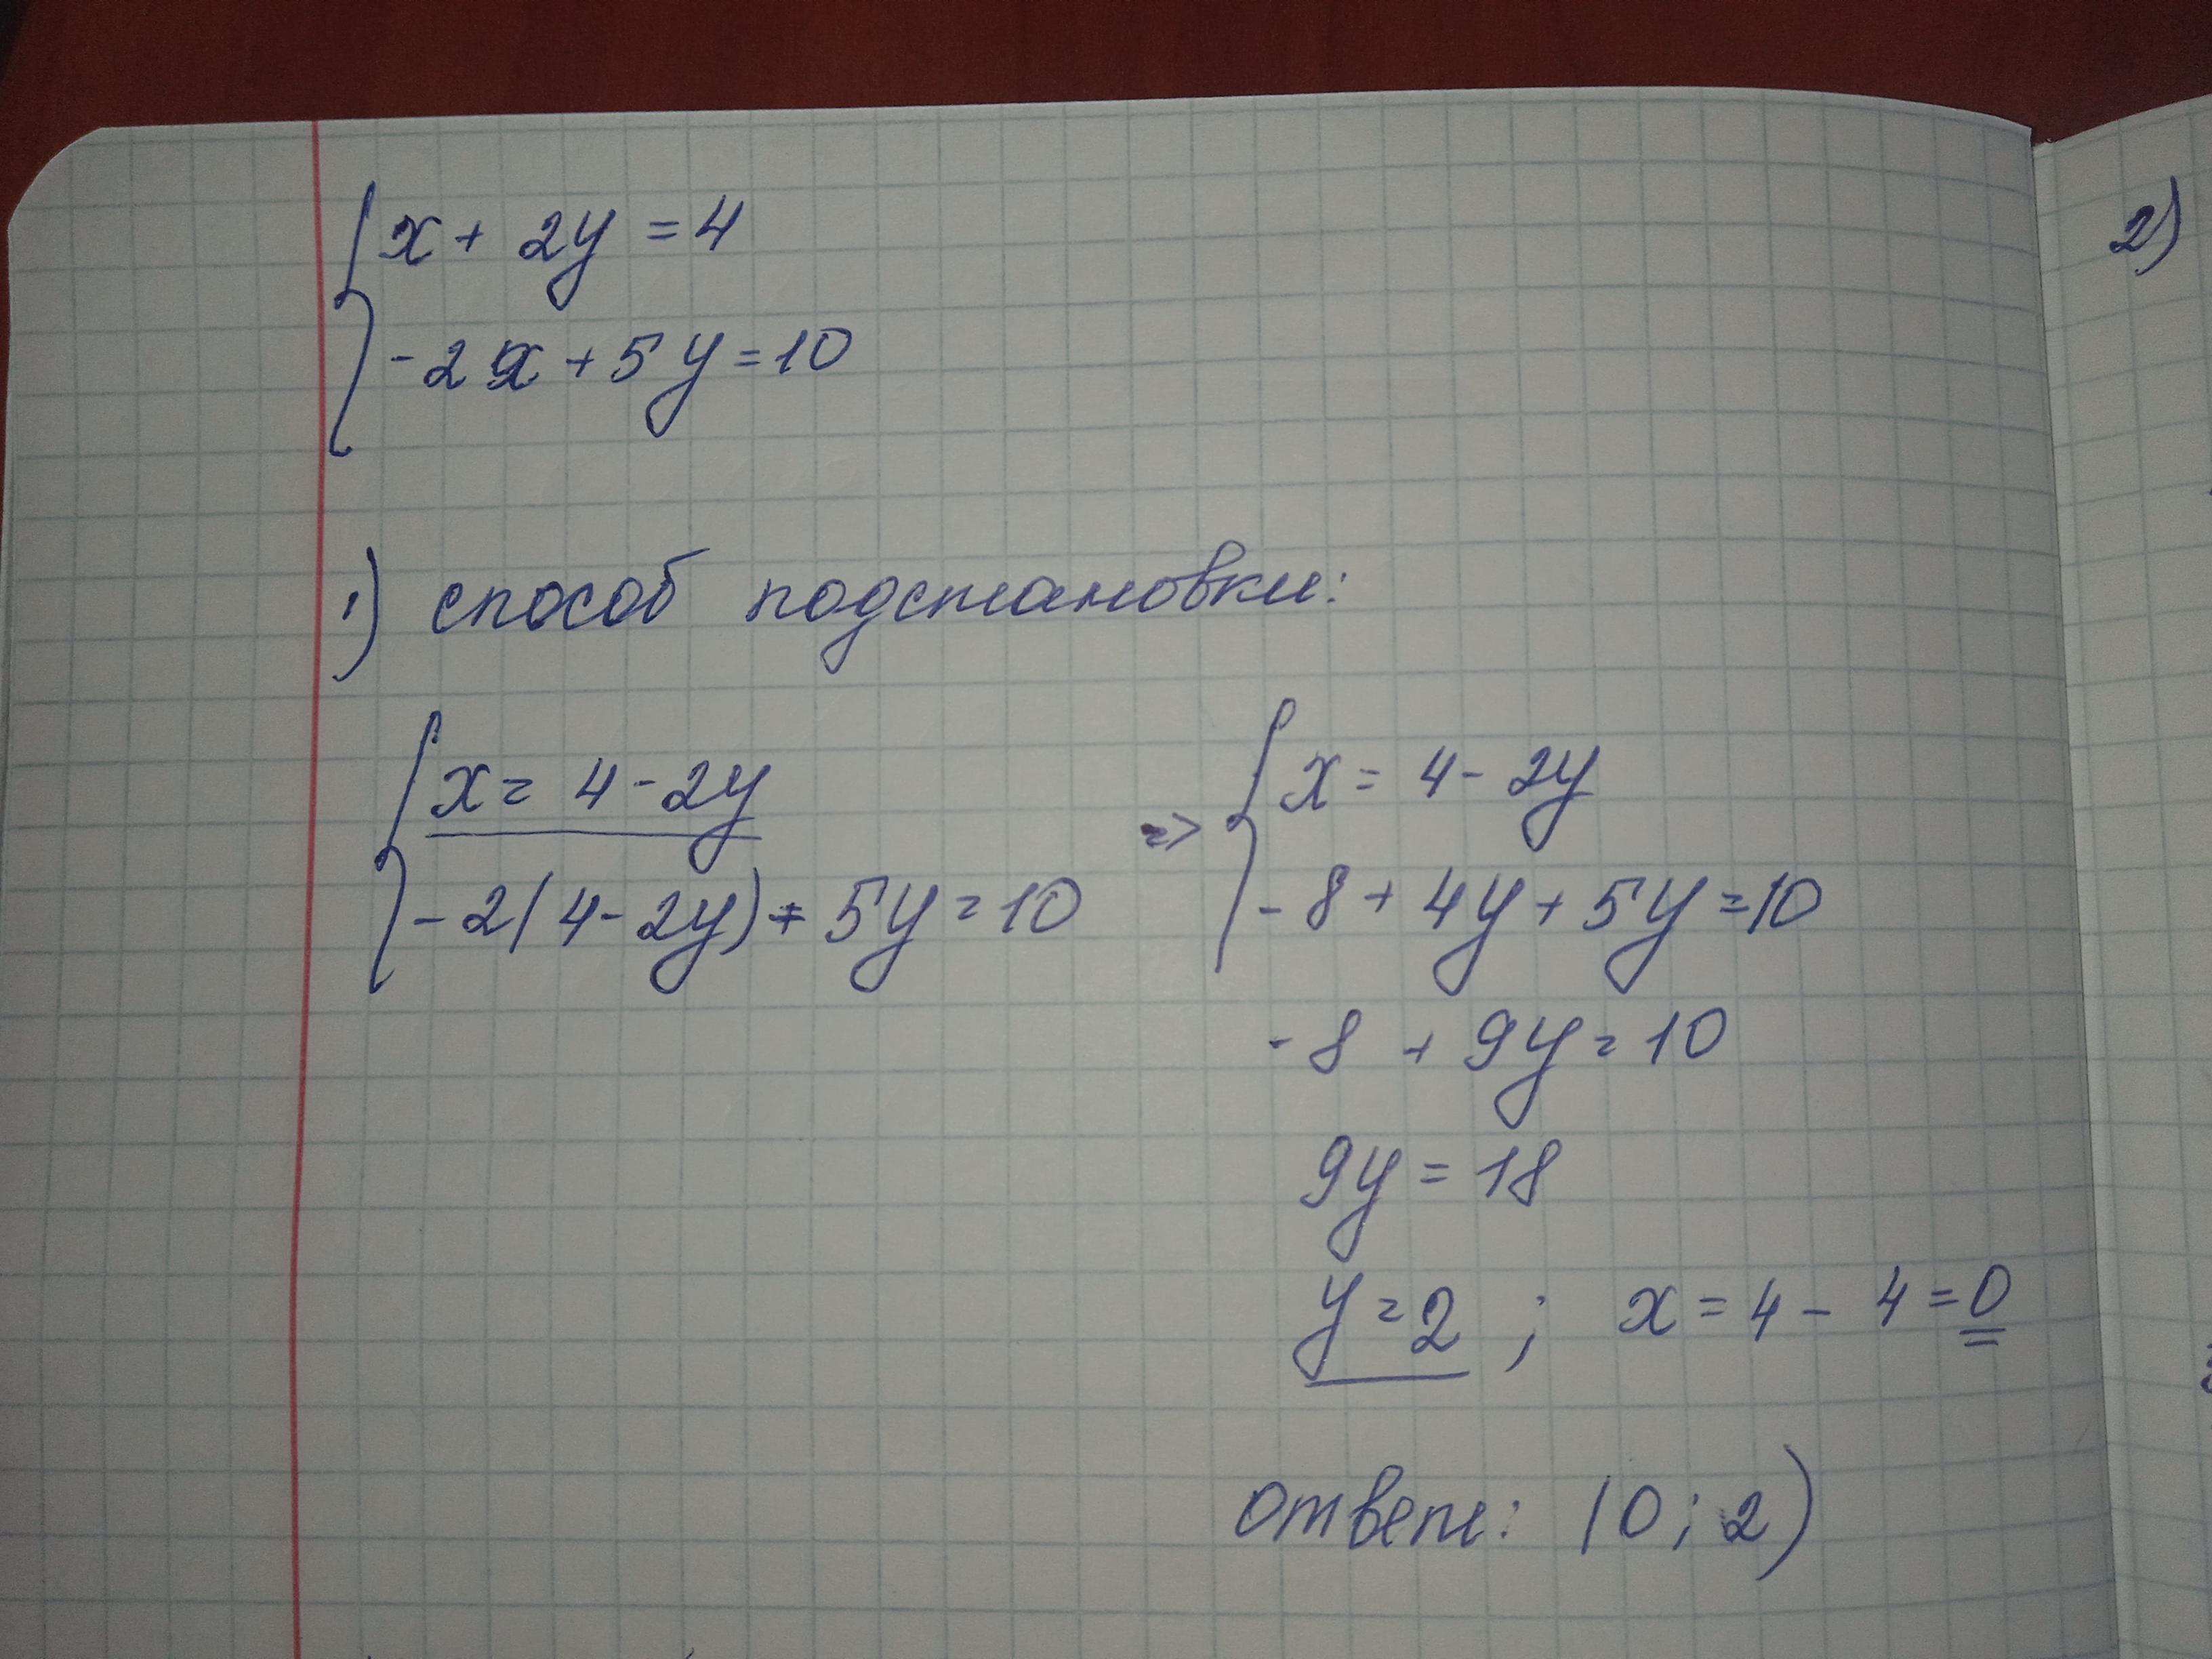 x + 2y = 4
-2x + 5y = 10
1) способ подстановки:
x = 4 - 2y
-2(4 - 2y) + 5y = 10
=> x = 4 - 2y
-8 + 4y + 5y = 10
-8 + 9y = 10
9y = 18
y = 2 ; x = 4 - 4 = 0
ответ: (0; 2)
2)